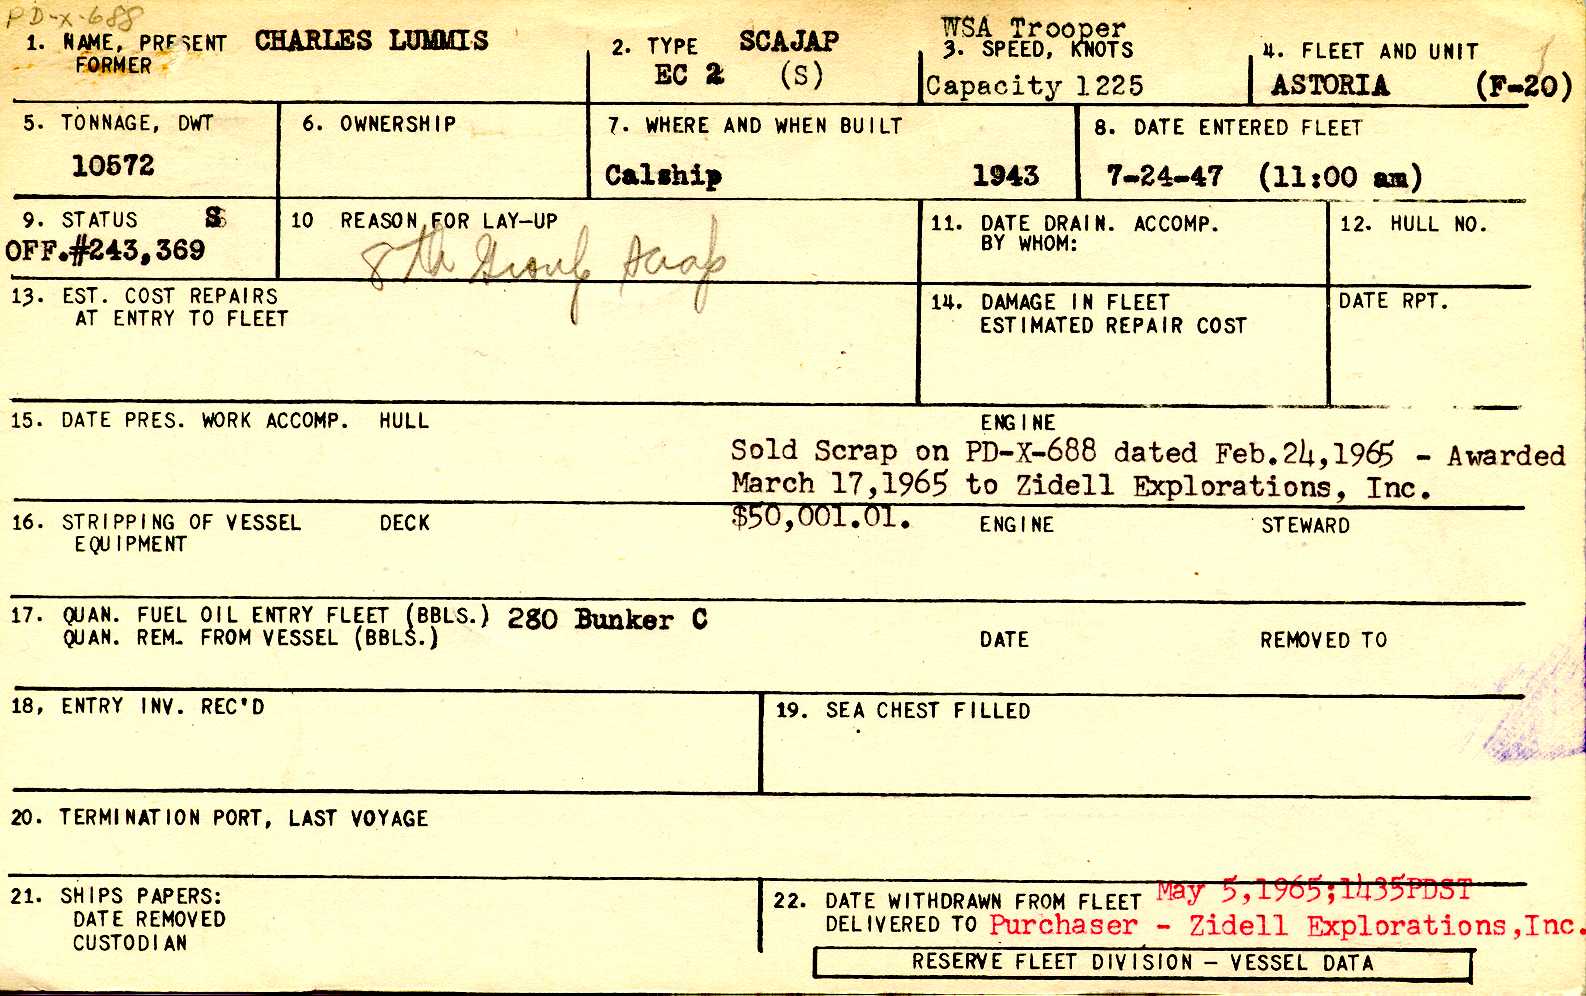 PD-X-688
1. NAME, PRESENT CHARLES LUMMIS
FORMER
2. TYPE SCAJAP
EC 2 (S)
WSA Trooper
3. SPEED, KNOTS
Capacity 1225
4. FLEET AND UNIT
ASTORIA (F-20)
5. TONNAGE, DWT
10572
6. OWNERSHIP
7. WHERE AND WHEN BUILT
Calship 1943
8. DATE ENTERED FLEET
7-24-47 (11:00 am)
9. STATUS S
OFF.#243,369
10 REASON FOR LAY-UP
8th Group Scrap
11. DATE DRAIN. ACCOMP.
BY WHOM:
12. HULL NO.
13. EST. COST REPAIRS
AT ENTRY TO FLEET
14. DAMAGE IN FLEET
ESTIMATED REPAIR COST
DATE RPT.
15. DATE PRES. WORK ACCOMP. HULL ENGINE
Sold Scrap on PD-X-688 dated Feb.24,1965 - Awarded
March 17,1965 to Zidell Explorations, Inc.
$50,001.01.
16. STRIPPING OF VESSEL DECK ENGINE STEWARD
EQUIPMENT
17. QUAN. FUEL OIL ENTRY FLEET (BBLS.) 280 Bunker C
QUAN. REM. FROM VESSEL (BBLS.) DATE REMOVED TO
18, ENTRY INV. REC'D
19. SEA CHEST FILLED
20. TERMINATION PORT, LAST VOYAGE
21. SHIPS PAPERS:
DATE REMOVED
CUSTODIAN
22. DATE WITHDRAWN FROM FLEET May 5,1965;1435PDST
DELIVERED TO Purchaser - Zidell Explorations,Inc.
RESERVE FLEET DIVISION — VESSEL DATA